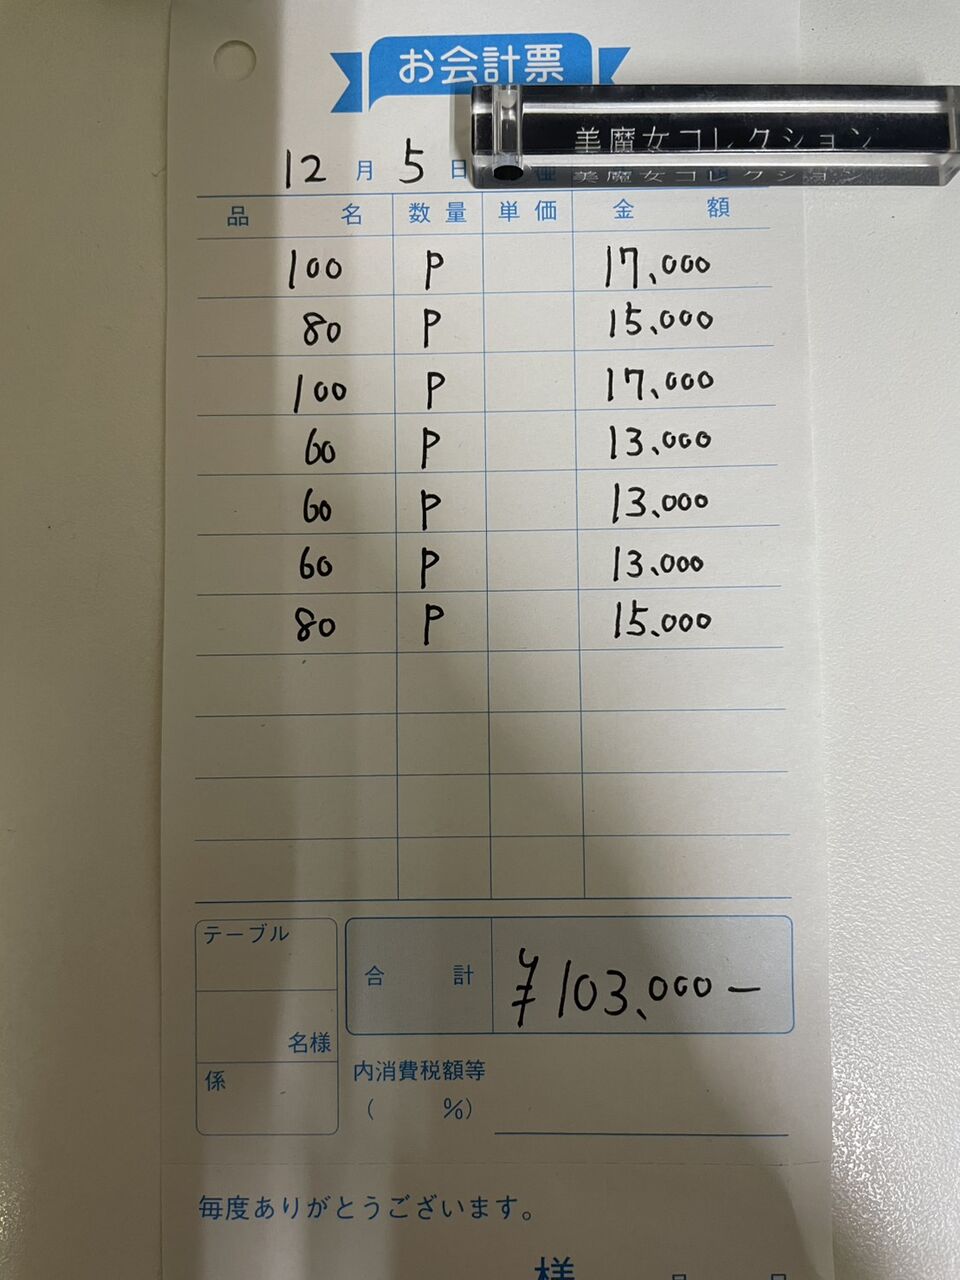 お会計票
美魔女コレクション
美魔女コレクション
12月 5日
品名 数量 単価 金額
100 P 17,000
80 P 15,000
100 P 17,000
60 P 13,000
60 P 13,000
60 P 13,000
80 P 15,000
テーブル
合計 ¥103,000-
名様
係
内消費税額等
( %)
毎度ありがとうございます。
様